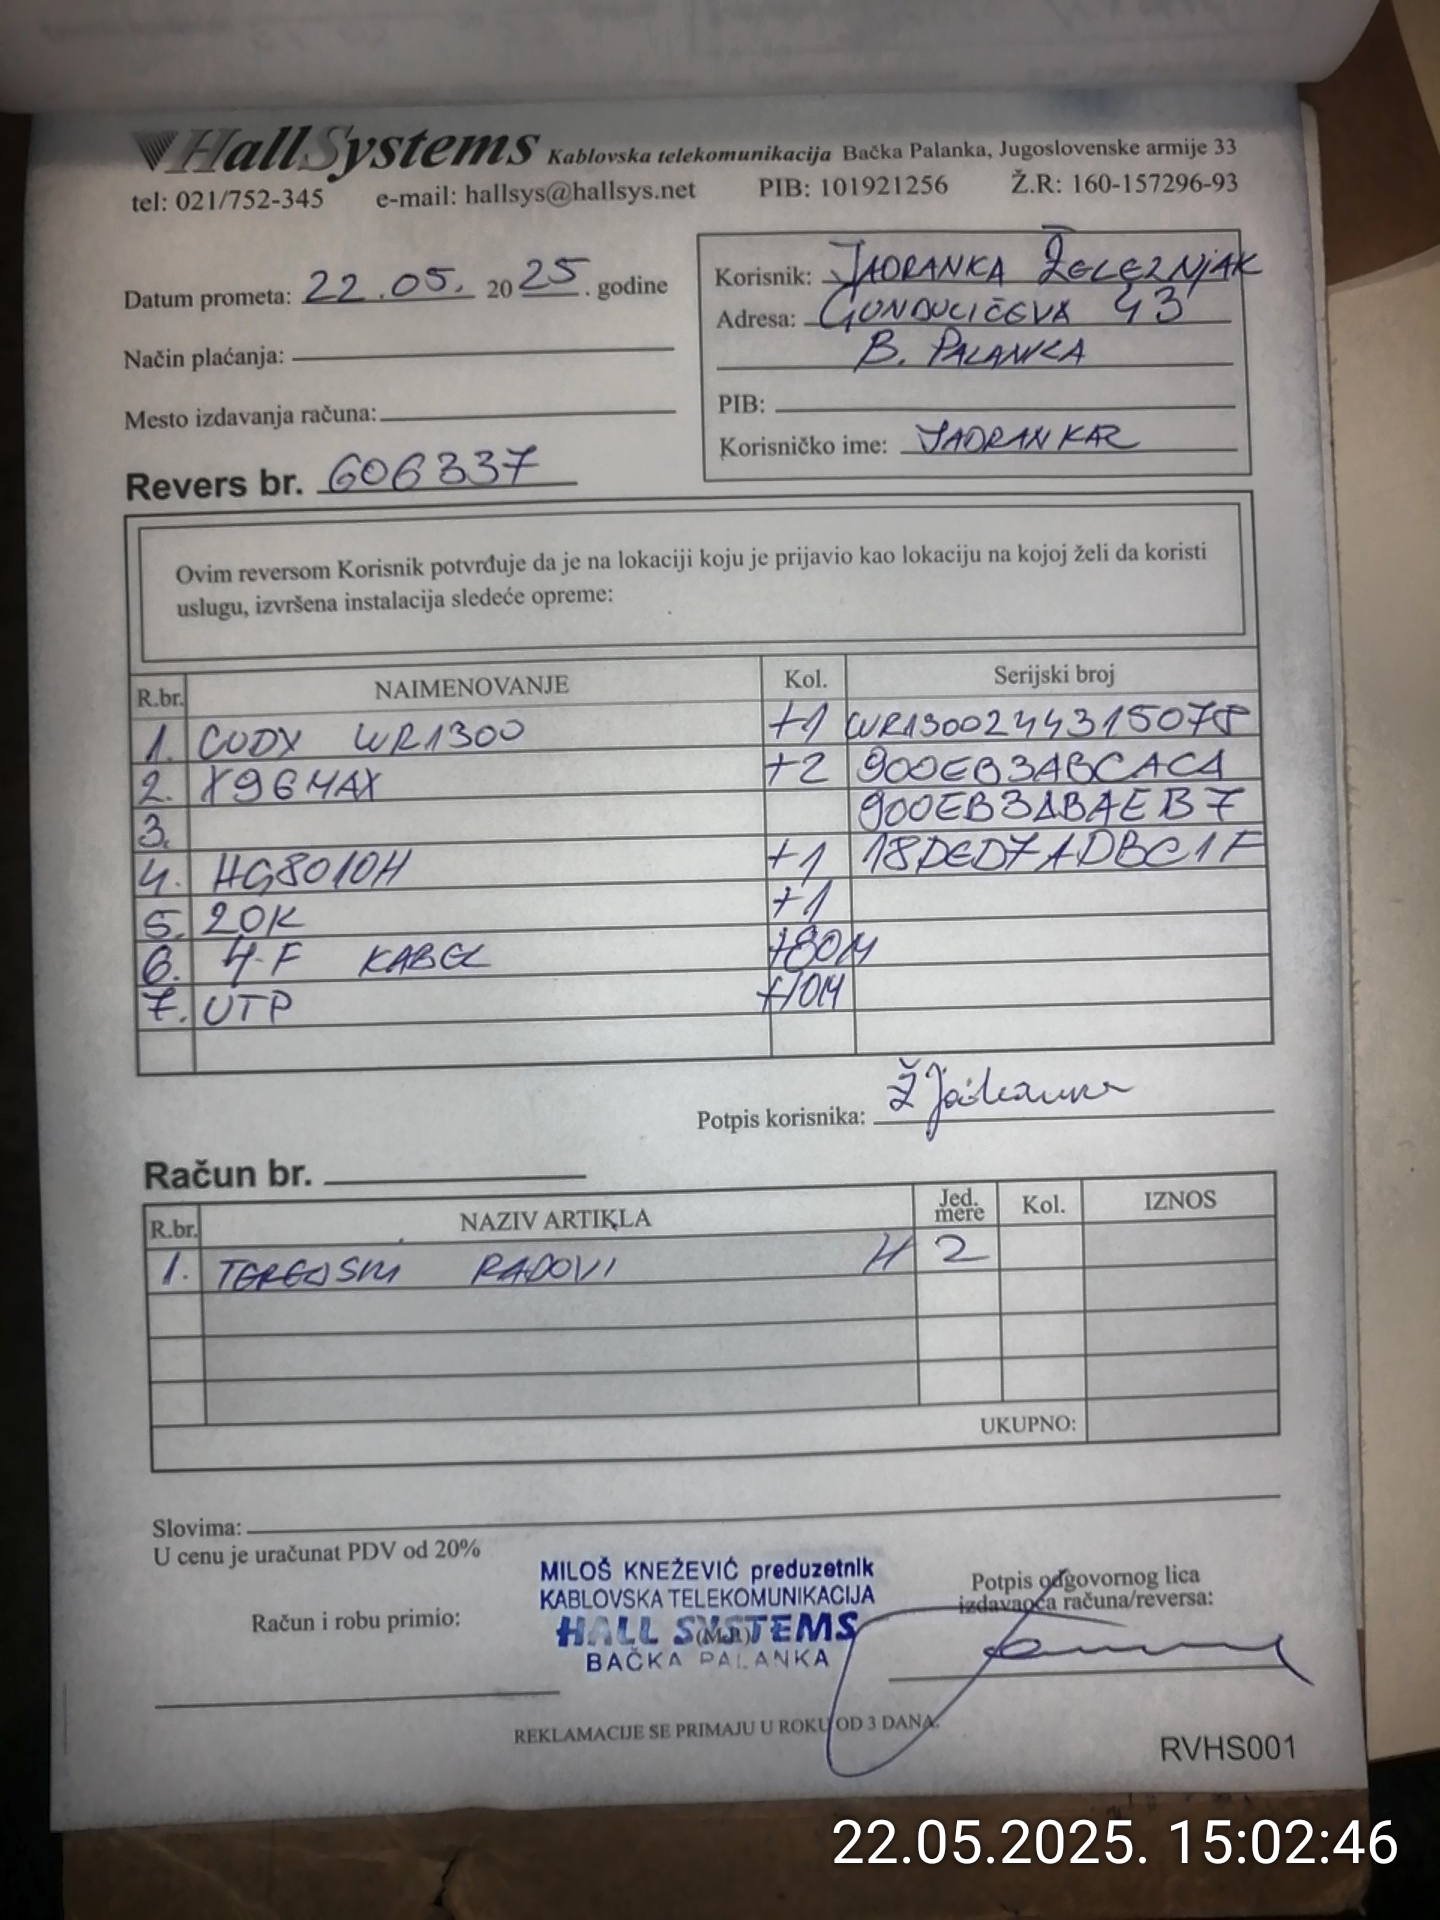 HallSystems Kablovska telekomunikacija Bačka Palanka, Jugoslovenske armije 33
tel: 021/752-345 e-mail: hallsys@hallsys.net PIB: 101921256 Ž.R: 160-157296-93
Datum prometa: 22.05. 2025. godine
Način plaćanja:
Mesto izdavanja računa:
Revers br. 606337
Korisnik: JADRANKA ŽELEZNJAK
Adresa: GUNDULIĆEVA 43
B. PALANKA
PIB:
Korisničko ime: JADRANKAZ
Ovim reversom Korisnik potvrđuje da je na lokaciji koju je prijavio kao lokaciju na kojoj želi da koristi
uslugu, izvršena instalacija sledeće opreme:
R.br. NAIMENOVANJE Kol. Serijski broj
1. CUDY WR1300 +1 WR1300244315078
2. X96MAX +2 900EB3ABCAC1
3. 900EB3ABAEB7
4. HG8010H +1 18DED7ADBC1F
5. 20K +1
6. 4-F KABEL +80M
7. UTP +10M
Potpis korisnika: Ž Jadranka
Račun br.
R.br. NAZIV ARTIKLA Jed. mere Kol. IZNOS
1. TERENSKI RADOVI H 2
UKUPNO:
Slovima:
U cenu je uračunat PDV od 20%
MILOŠ KNEŽEVIĆ preduzetnik
KABLOVSKA TELEKOMUNIKACIJA
HALL SYSTEMS
BAČKA PALANKA
(M.P.)
Račun i robu primio:
Potpis odgovornog lica
izdavaoca računa/reversa:
REKLAMACIJE SE PRIMAJU U ROKU OD 3 DANA.
RVHS001
22.05.2025. 15:02:46